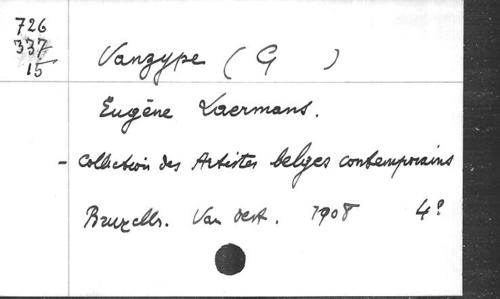 726
337
15
Vanzype (G )
Eugène Laermans.
- Collection des Artistes belges contemporains
Bruxelles. Van Oest. 1908 4º